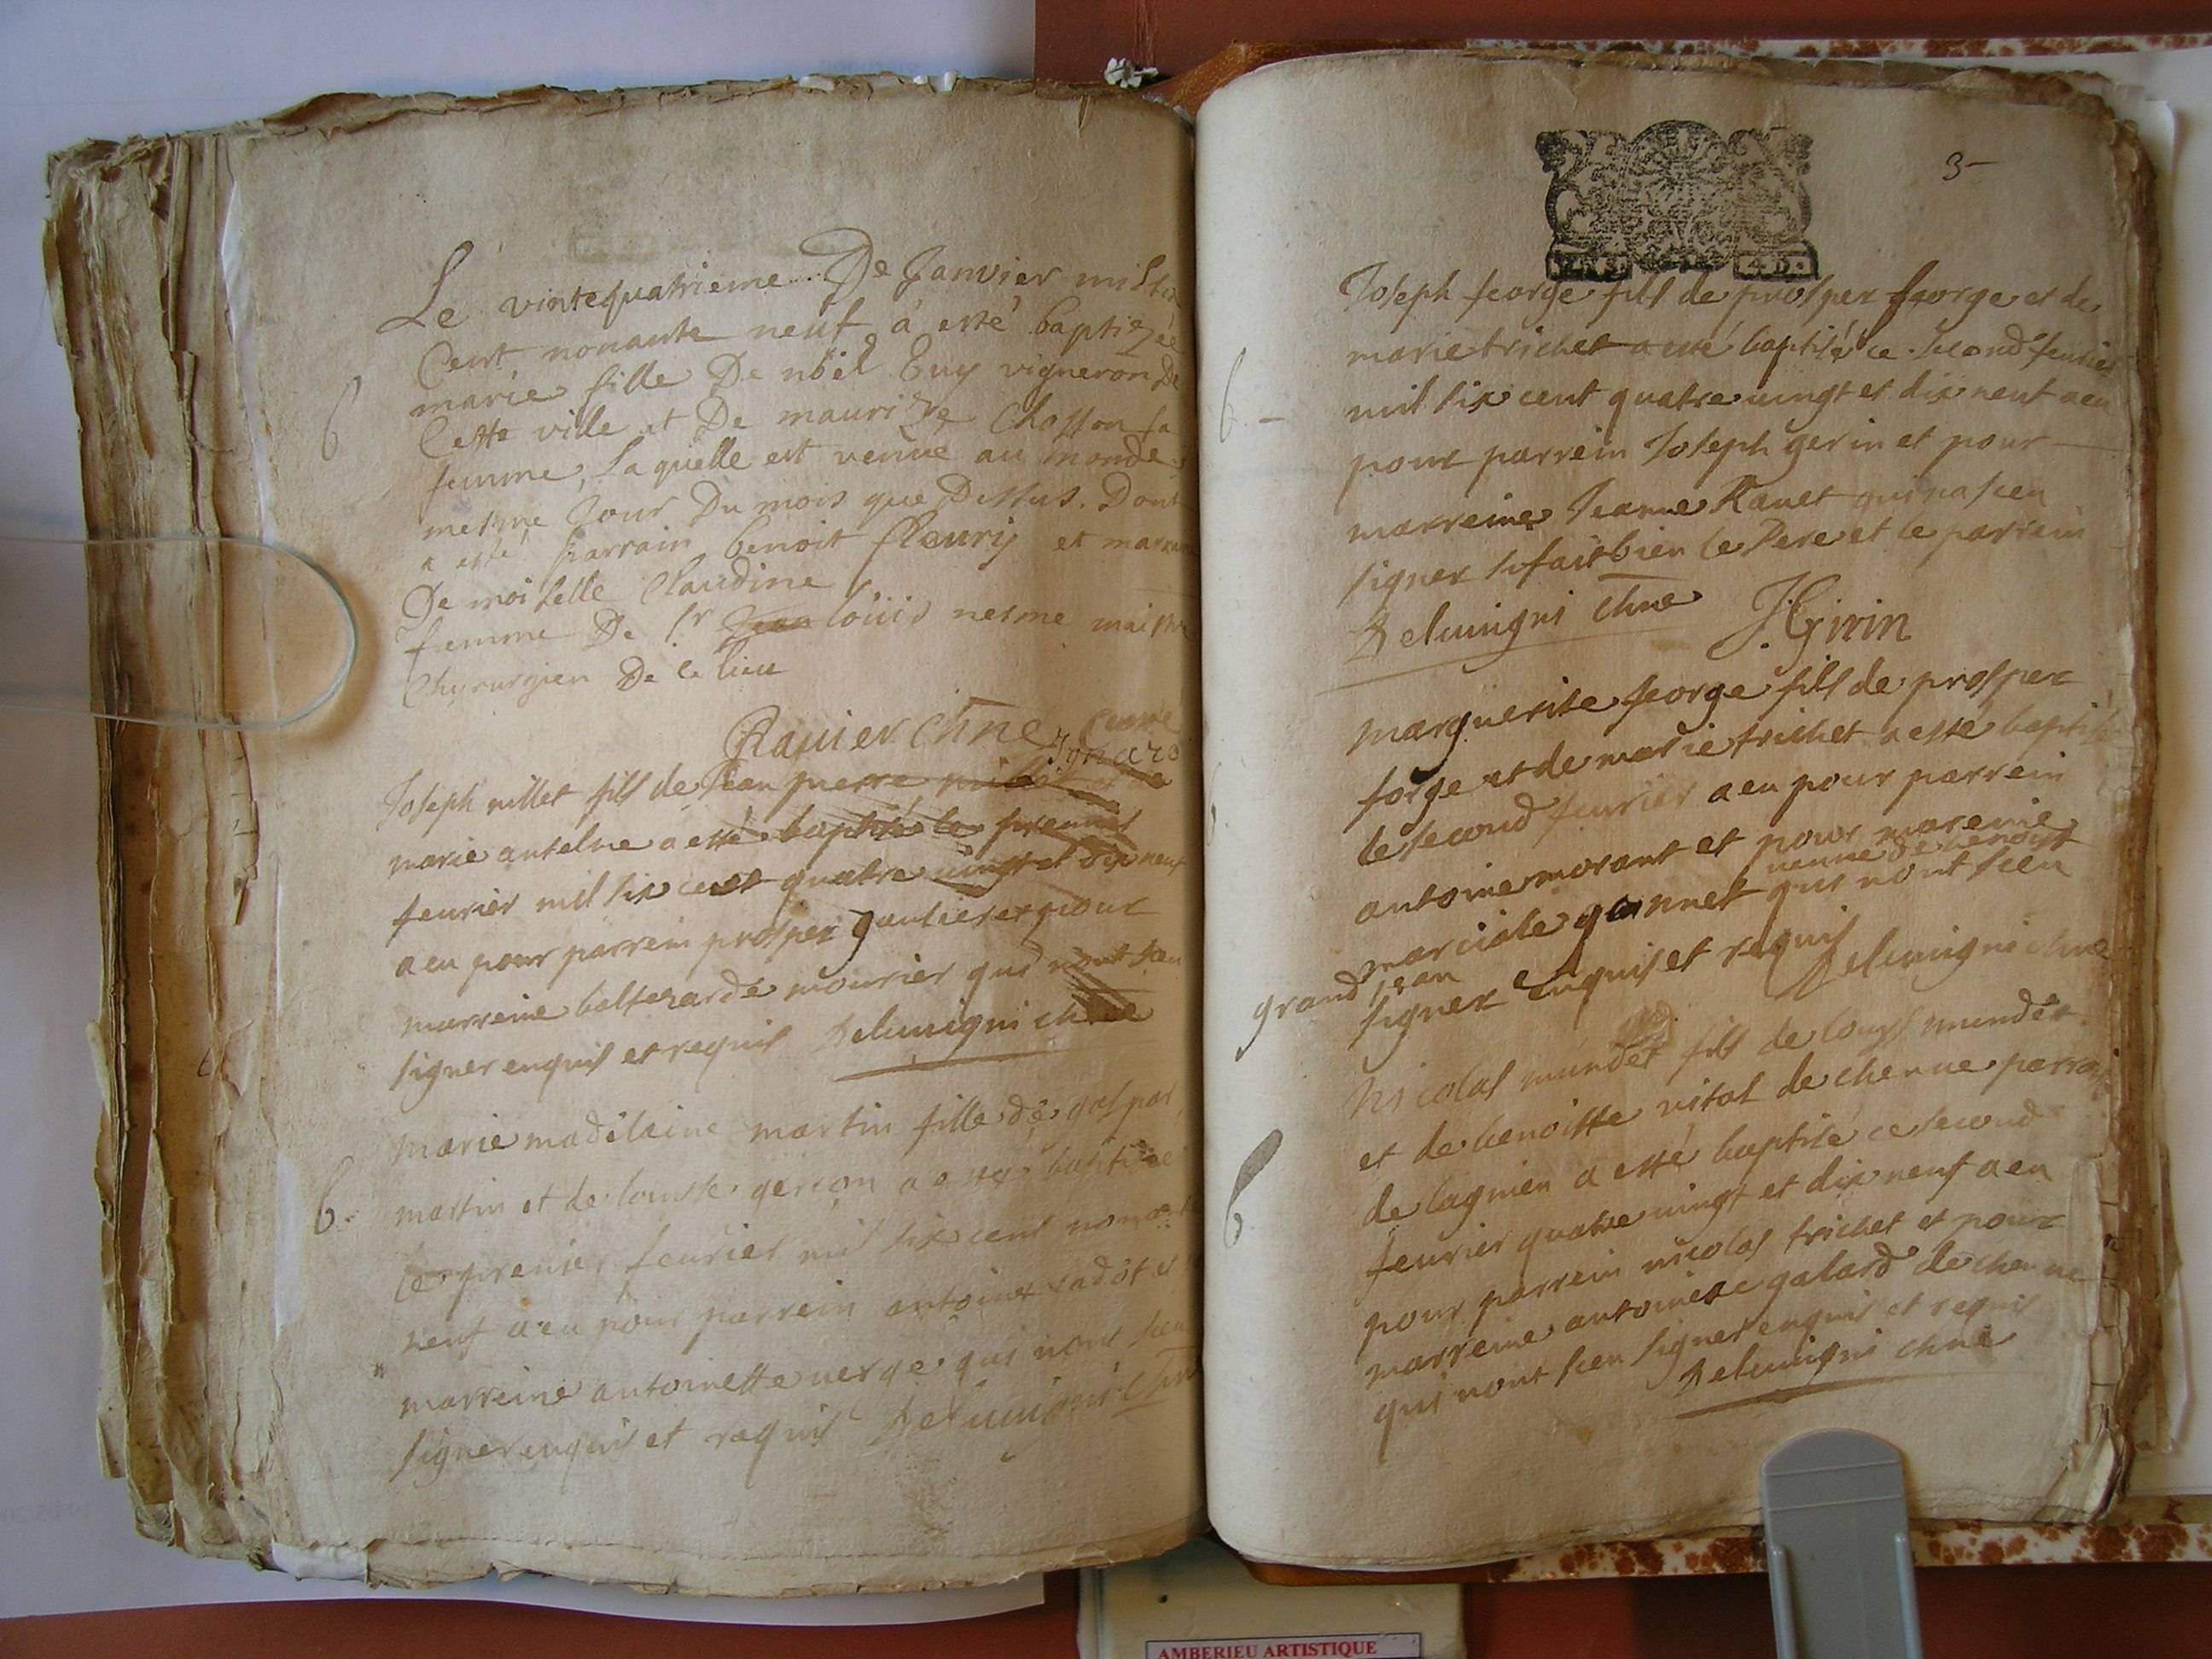 Le vintequatrieme De Janvier mil six
Cent nonante neuf á esté baptizée
marie fille De nöel Cuy vigneron De
Cette ville et De maurize Chosson sa
femme, Laquelle est venüe au monde
mesme Jour Du mois que Dessus. Dont
a esté parrain benoit fleury et marraine
De moiselle Claudine
femme De sr Jean loüis nesme maistre
Chyrurgien De ce lieu
Ravier Chne
Joseph millet fils de Jean pierre millet et de
marie antelme a esté baptisé le premier
feurier mil six cent quatre uingt et dix neuf
a eu pour parrein prosper gautier et pour
marreine baltezarde mourier qui nont sceu
signer enquis et requis Deluuigni chne
marie madelaine martin fille de gaspar
6. martin et de louise gerçon a esté baptisée
le premier feurier mil six cent nonante
neuf a eu pour parrein antoine radot et
marreine antoinette uerge qui nont sceu
signer enquis et requis Deluuigni Chne
3-
Joseph george fils de prosper george et de
marie trichet a esté baptisé ce second feurier
6 - mil six cent quatre uingt et dix neuf a eu
pour parrein Joseph gerin et pour
marreine Jeanne Rauet qui na sceu
signer si fait bien le Pere et le parrein
Deluuigni Chne J.Girin
Marguerite george fils de prosper
forge et de marie trichet a esté baptisée
le second feurier a eu pour parrein
antoine morant et pour mareine
ueuue de benoist
marciale gonnet qui nont sceu
grand jean
signer enquis et requis Deluuigni chne
Nicolas mundet fils de louys mundet
et de benoitte uital de chenue parroisse
de lagnieu a esté baptisé ce second
6 feurier quatre uingt et dix neuf a eu
pour parrein nicolas trichet et pour
marreine antoinete galard de chenue
qui nont sceu signer enquis et requis
Deluuigni chne
AMBERIEU ARTISTIQUE